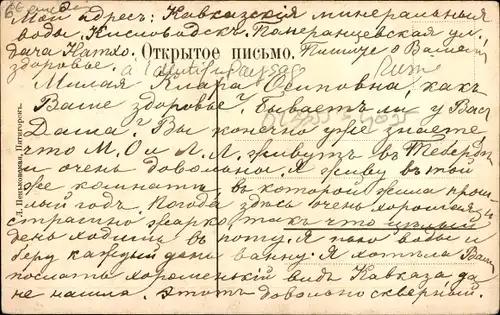 Мой адресъ: Кавказскія минеральныя
воды. Кисловодскъ. Панеранцевская ул.
дача Натхо. Открытое письмо. Пишите о Вашемъ
здоровье.
Милая Клара Осиповна, какъ
Ваше здоровье? Бываетъ ли у Васъ
Даша? Вы конечно уже знаете,
что М. О и Л. Л. живутъ въ Теберд
и очень довольны. Я живу въ той
же комнатѣ, въ которой жила прош-
лый годъ. Погода здѣсь очень хорошая и
страшно жарко, такъ что цѣлый
день ходишь въ поту. Я пью воды и
беру каждый день ванну. Я хотѣла Вамъ
послать хорошенькій видъ Кавказа, да
не нашла. Этотъ довольно скверный.
Пятигорскъ.